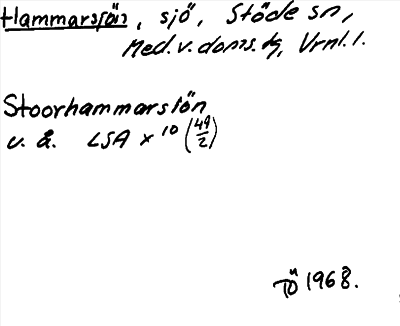 Hammarsjön, sjö, Stöde sn,
Med. v. doms. tg, Vrnl. l.
Stoorhammarsiön
u. å. LSA x 10 (49/2)
TÖ 1968.